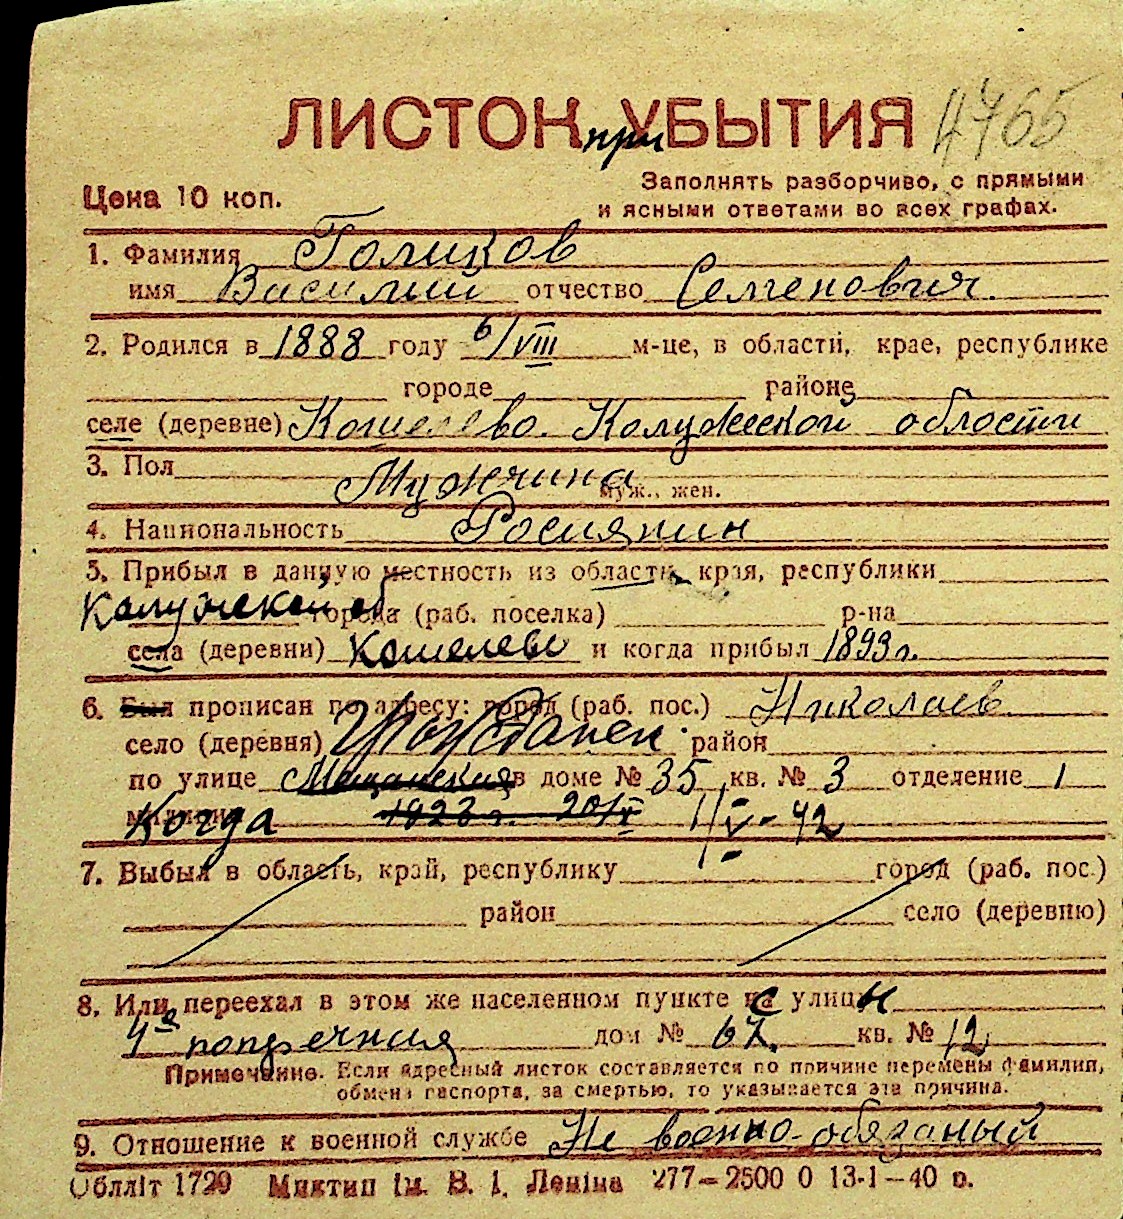 ЛИСТОК при УБЫТИЯ 4765
Цена 10 коп.
Заполнять разборчиво, с прямыми
и ясными ответами во всех графах.
1. Фамилия Голиков
имя Василий отчество Семенович
2. Родился в 1888 году 6/VIII м-це, в области, крае, республике
городе районе
селе (деревне) Кошелево Калужской области
3. Пол Мужчина
муж., жен.
4. Национальность Росиянин
5. Прибыл в данную местность из области, края, республики
Калужской об города (раб. поселка) р-на
села (деревни) Кошелево и когда прибыл 1893 г.
6. Был прописан по адресу: город (раб. пос.) Николаев
село (деревня) район
по улице Мещанская в доме № 35 кв. № 3 отделение 1
милиции Когда 1923 г. 20/V 1/V-42
7. Выбыл в область, край, республику город (раб. пос.)
район село (деревню)
8. Или переехал в этом же населенном пункте с улицы
4я попречная дом № 67 кв. № 12
Примечание. Если адресный листок составляется по причине перемены фамилии,
обмена паспорта, за смертью, то указывается эта причина.
9. Отношение к военной службе Не военно-обязаный
Обллiт 1729 Миктип iм. В. I. Ленiна 277-2500 0 13-1-40 р.